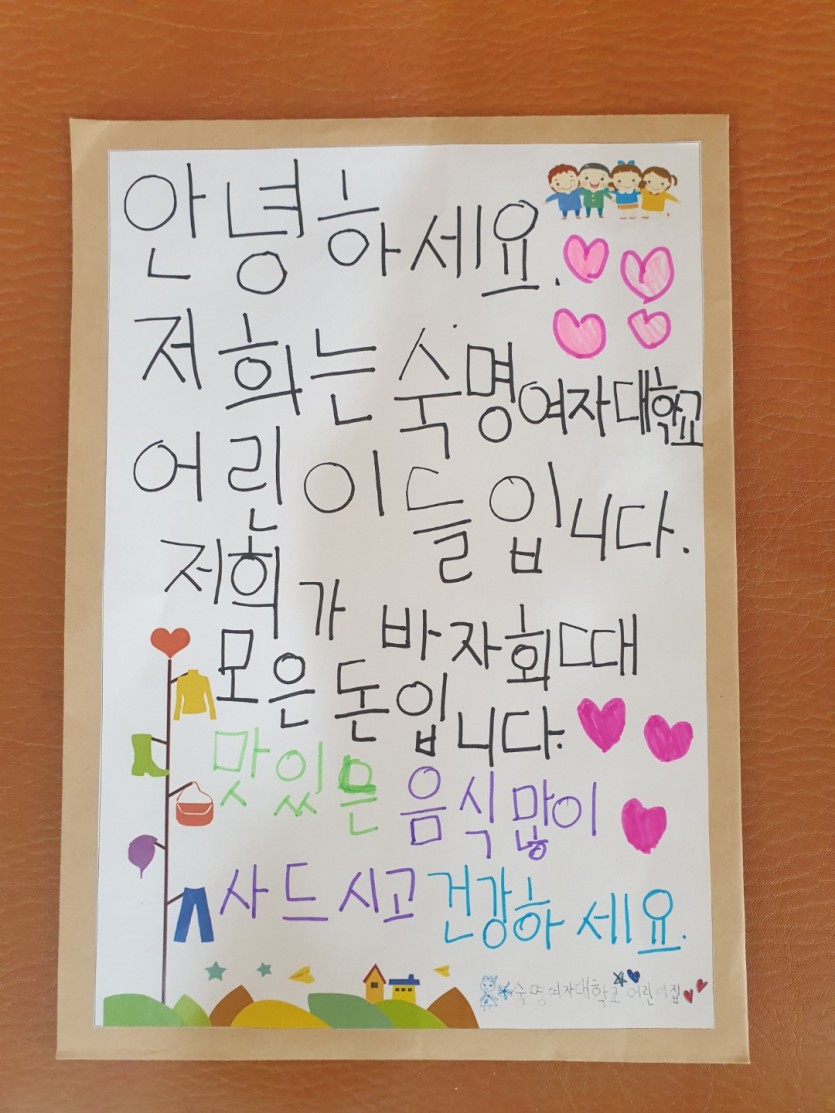 안녕하세요.
저희는 숙명여자대학교
어린이들입니다.
저희가 바자회때
모은 돈입니다.
맛있는 음식 많이
사드시고 건강하세요.
숙명여자대학교 어린이집